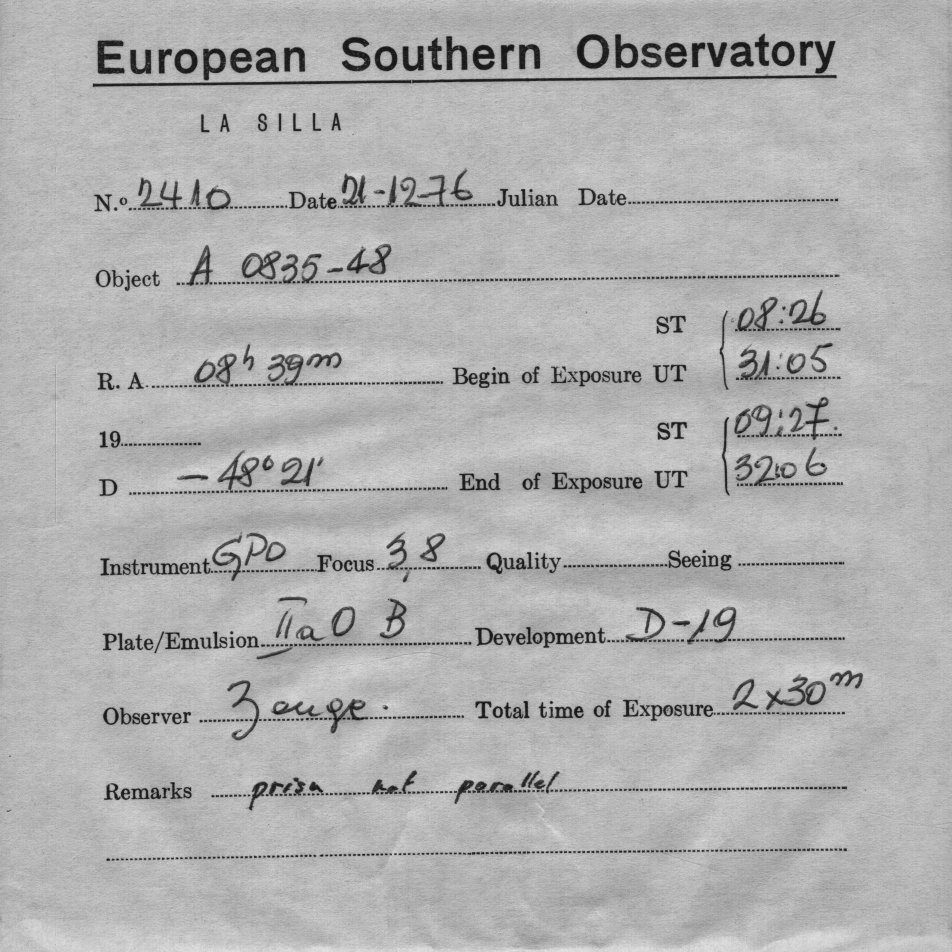 European Southern Observatory
LA SILLA
N.º 2410 Date 21-12-76 Julian Date
Object A 0835-48
ST 08:26
R. A. 08h 39m Begin of Exposure UT 31:05
19 ST 09:27
D -48° 21' End of Exposure UT 32:06
Instrument GPO Focus 3,8 Quality Seeing
Plate/Emulsion IIaO B Development D-19
Observer Total time of Exposure 2x30m
Remarks prism not parallel